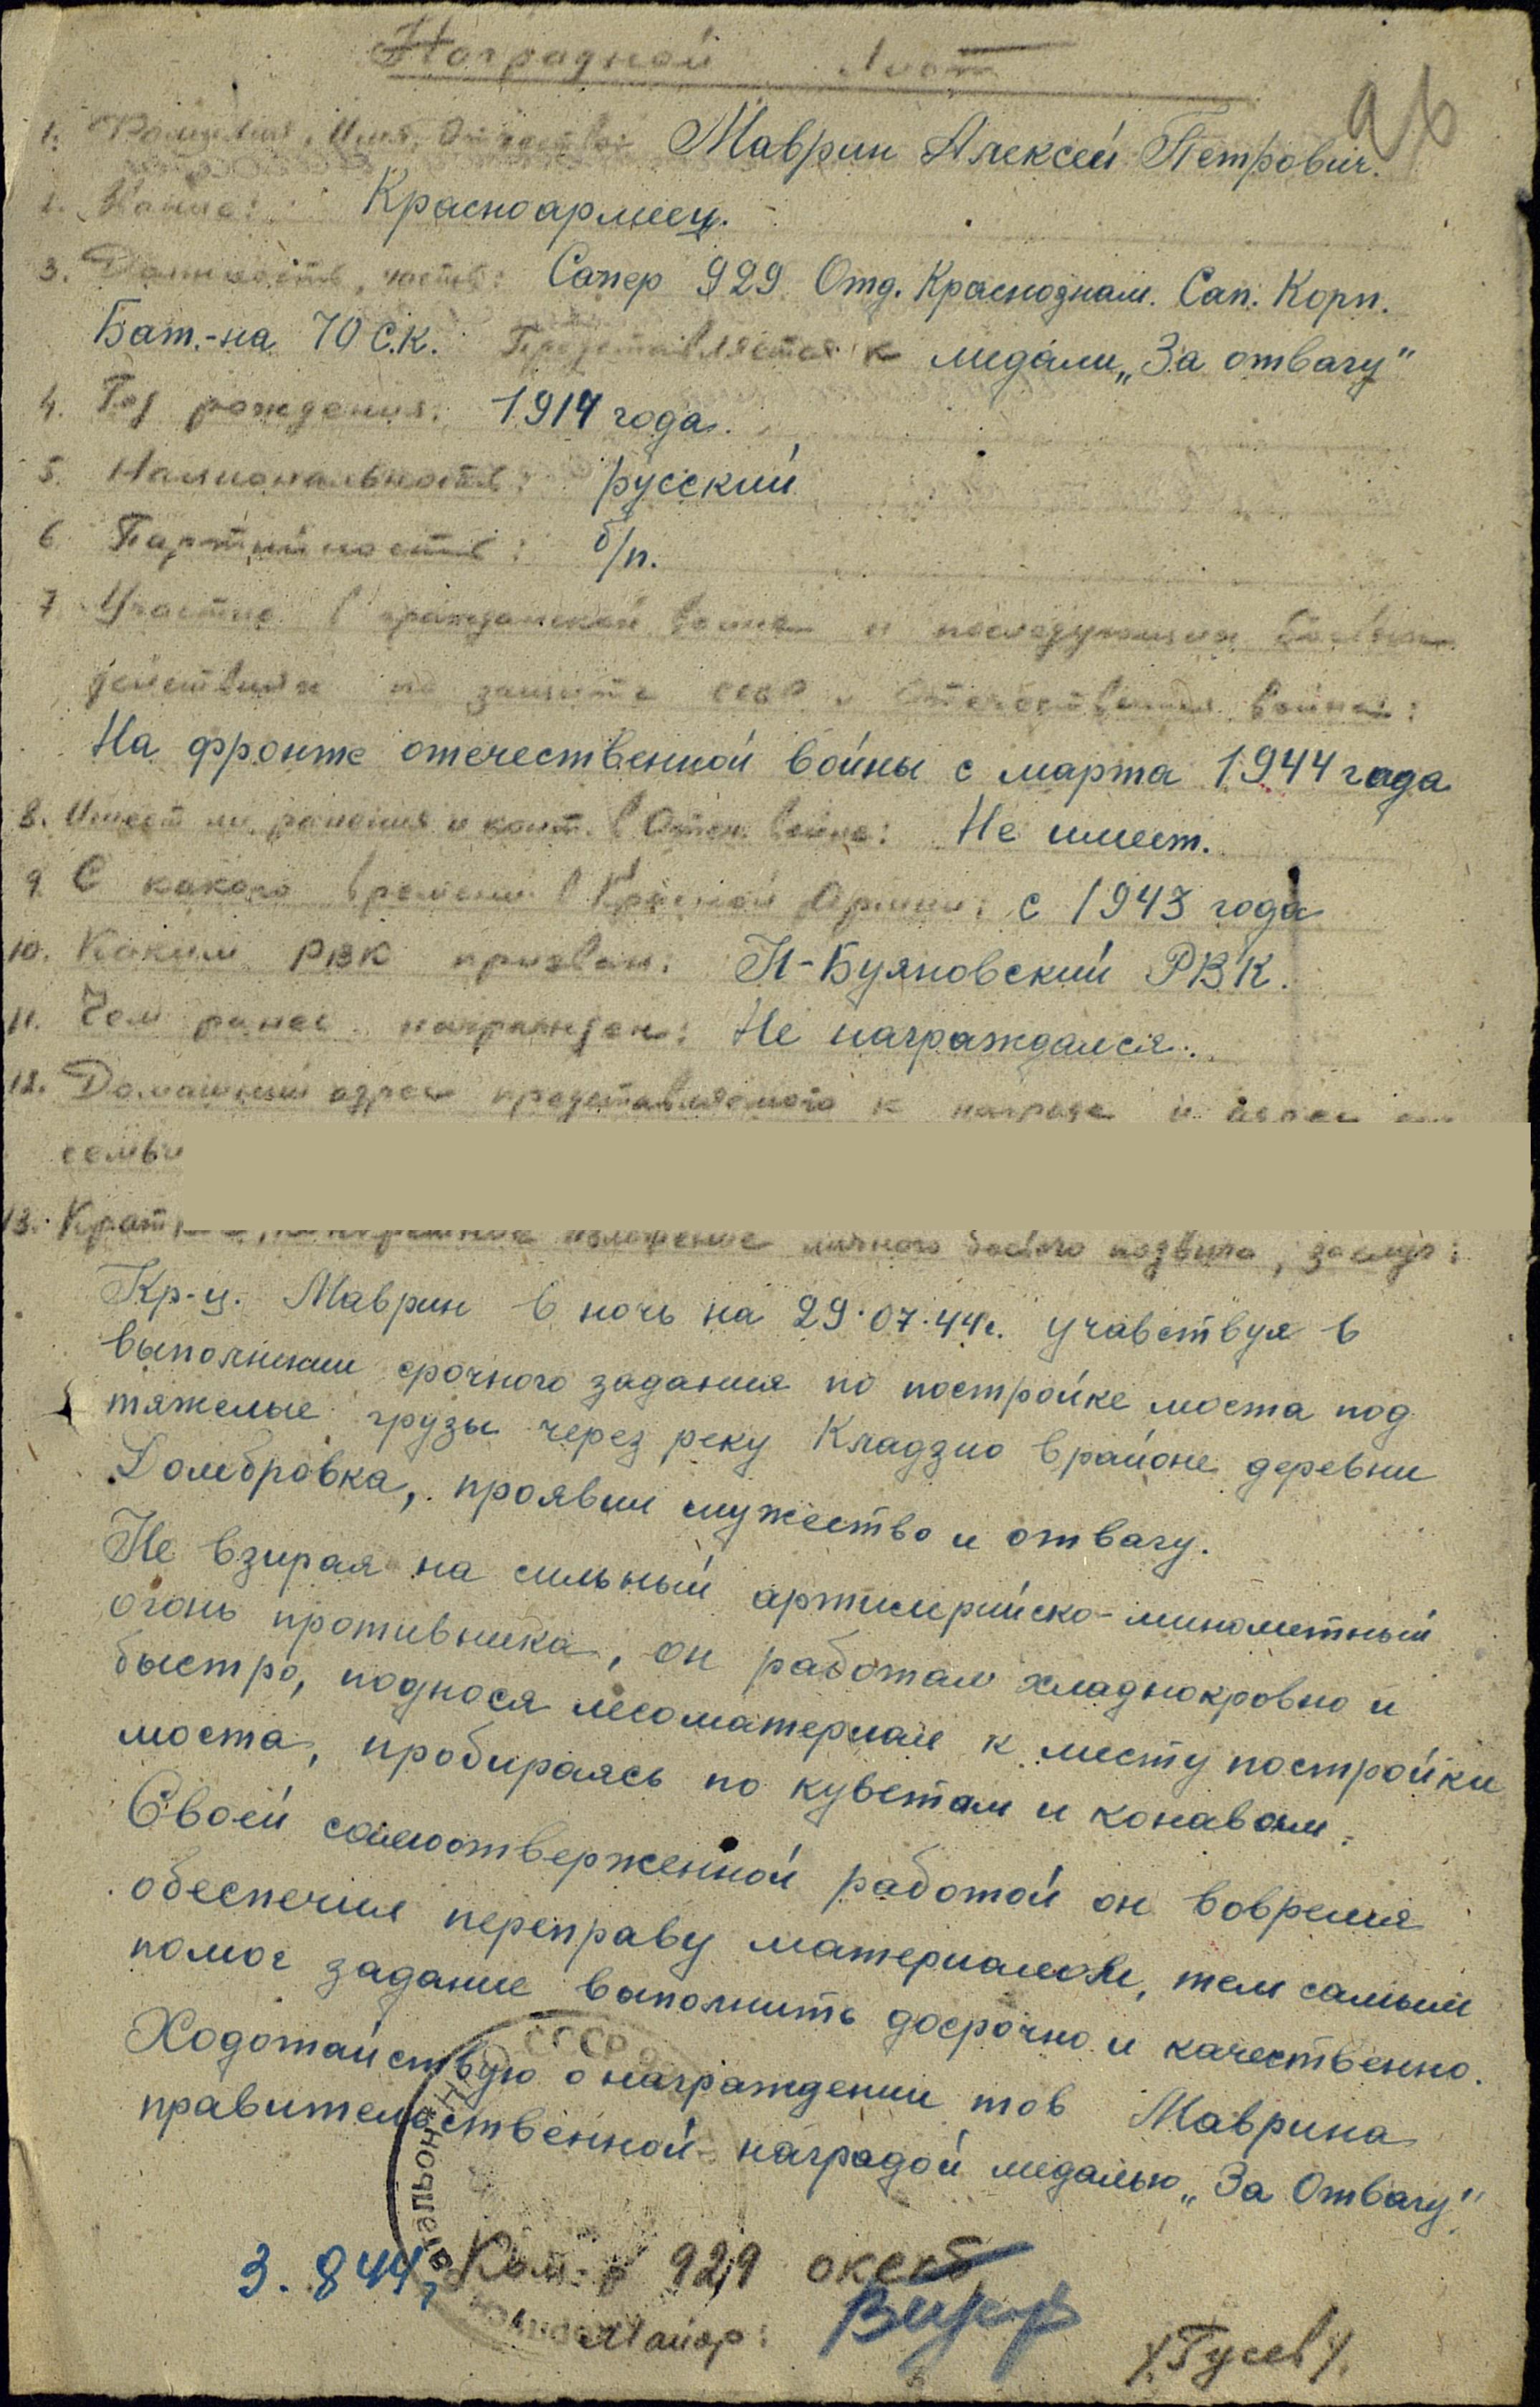 Наградной Лист
96
1. Фамилия, Имя, Отчество: Маврин Алексей Петрович.
2. Звание: Красноармеец.
3. Должность, часть: Сапер 929 Отд. Краснознам. Сап. Корп.
Бат.-на 70 С.К. Представляется к медали „За отвагу"
4. Год рождения: 1914 года.
5. Национальность: русский
6 Партийность: б/п.
7 Участие в гражданской войне и последующих боевых
действиях по защите СССР и Отечественной войне:
На фронте отечественной войны с марта 1944 года
8. Имеет ли ранения и конт. в Отеч. войне: Не имеет.
9 С какого времени в Красной Армии: с 1943 года
10. Каким РВК призван: Н-Буяновский РВК.
11. Чем ранее награжден: Не награждался.
12. Домашний адрес представляемого к награде и адрес его
семьи
13. Краткое, конкретное изложение личного боевого подвига, заслуг:
Кр-ц. Маврин в ночь на 29.07.44г. учавствуя в
выполнении срочного задания по постройке моста под
тяжелые грузы через реку Кладзио в районе деревни
Домбровка, проявил мужество и отвагу.
Не взирая на сильный артилерийско-минометный
огонь противника, он работал хладнокровно и
быстро, поднося лесоматериал к месту постройки
моста, пробираясь по куветам и конавам.
Своей самоотверженной работой он вовремя
обеспечил переправу материалом, тем самым
помог задание выполнить досрочно и качественно.
Ходотайствую о награждении тов Маврина
правительственной наградой медалью „За Отвагу"
СССР
БАТАЛЬОН
3.8 44г. Ком-р 929 окссб
Майор:
/Гусев/.